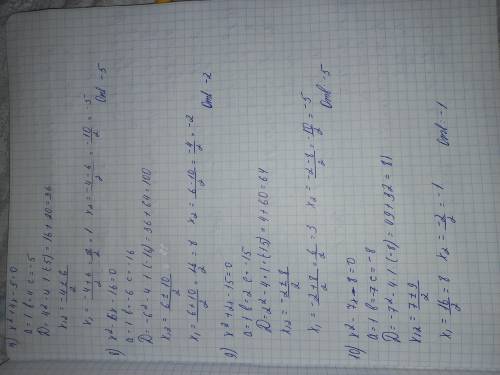 7) x²+4x-5=0
a=1 b=4 c=-5
D=4²-4·1·(-5)=16+20=36
x₁,₂=(-4±6)/2
x₁=(-4+6)/2=2/2=1 x₂=(-4-6)/2=-10/2=-5
Отв: -5
8) x²-6x-16=0
a=1 b=-6 c=-16
D=-6²-4·1·(-16)=36+64=100
x₁,₂=(6±10)/2
x₁=(6+10)/2=16/2=8 x₂=(6-10)/2=-4/2=-2
Отв: -2
9) x²+2x-15=0
a=1 b=2 c=-15
D=2²-4·1·(-15)=4+60=64
x₁,₂=(-2±8)/2
x₁=(-2+8)/2=6/2=3 x₂=(-2-8)/2=-10/2=-5
Отв: -5
10) x²-7x-8=0
a=1 b=-7 c=-8
D=-7²-4·1·(-8)=49+32=81
x₁,₂=(7±9)/2
x₁=16/2=8 x₂=-2/2=-1
Отв: -1